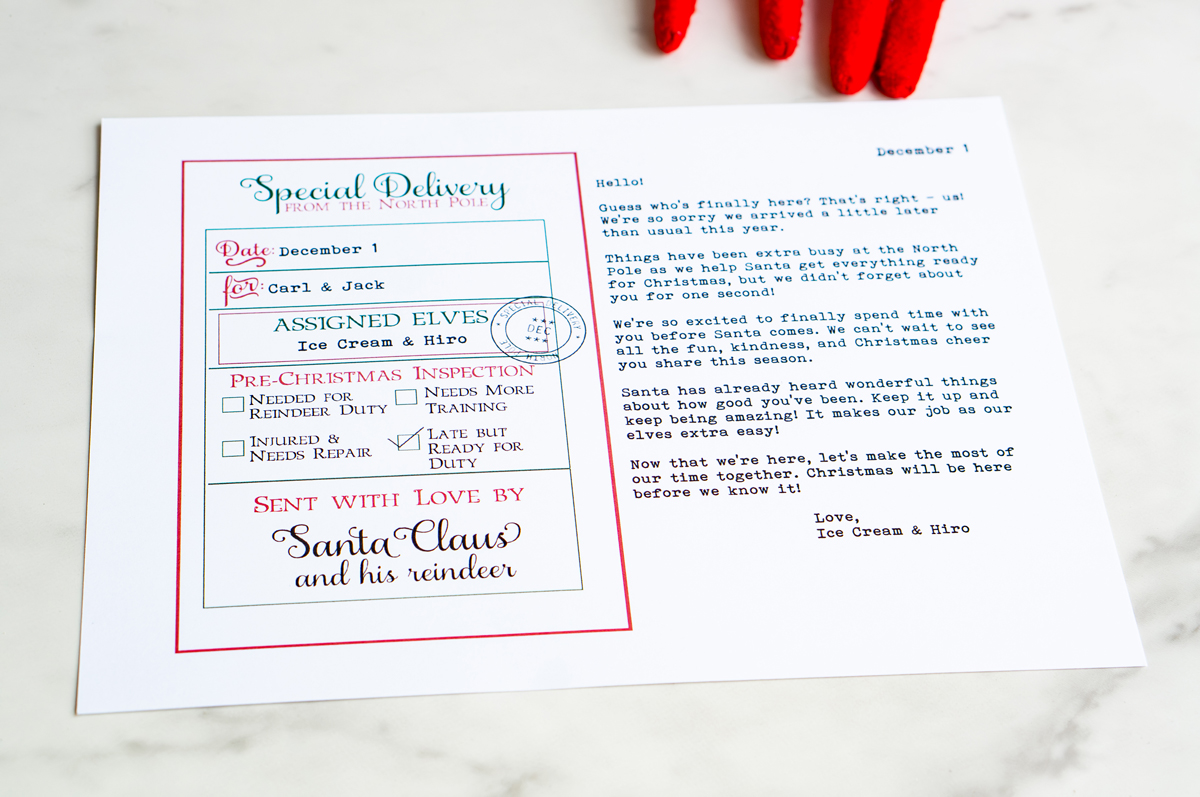 Special Delivery
FROM THE NORTH POLE
Date: December 1
for: Carl & Jack
ASSIGNED ELVES
Ice Cream & Hiro
SPECIAL DELIVERY
DEC
NORTH POLE
PRE-CHRISTMAS INSPECTION
NEEDED FOR
REINDEER DUTY
NEEDS MORE
TRAINING
INJURED &
NEEDS REPAIR
LATE BUT
READY FOR
DUTY
SENT WITH LOVE BY
Santa Claus
and his reindeer
December 1
Hello!
Guess who's finally here? That's right - us!
We're so sorry we arrived a little later
than usual this year.
Things have been extra busy at the North
Pole as we help Santa get everything ready
for Christmas, but we didn't forget about
you for one second!
We're so excited to finally spend time with
you before Santa comes. We can't wait to see
all the fun, kindness, and Christmas cheer
you share this season.
Santa has already heard wonderful things
about how good you've been. Keep it up and
keep being amazing! It makes our job as our
elves extra easy!
Now that we're here, let's make the most of
our time together. Christmas will be here
before we know it!
Love,
Ice Cream & Hiro